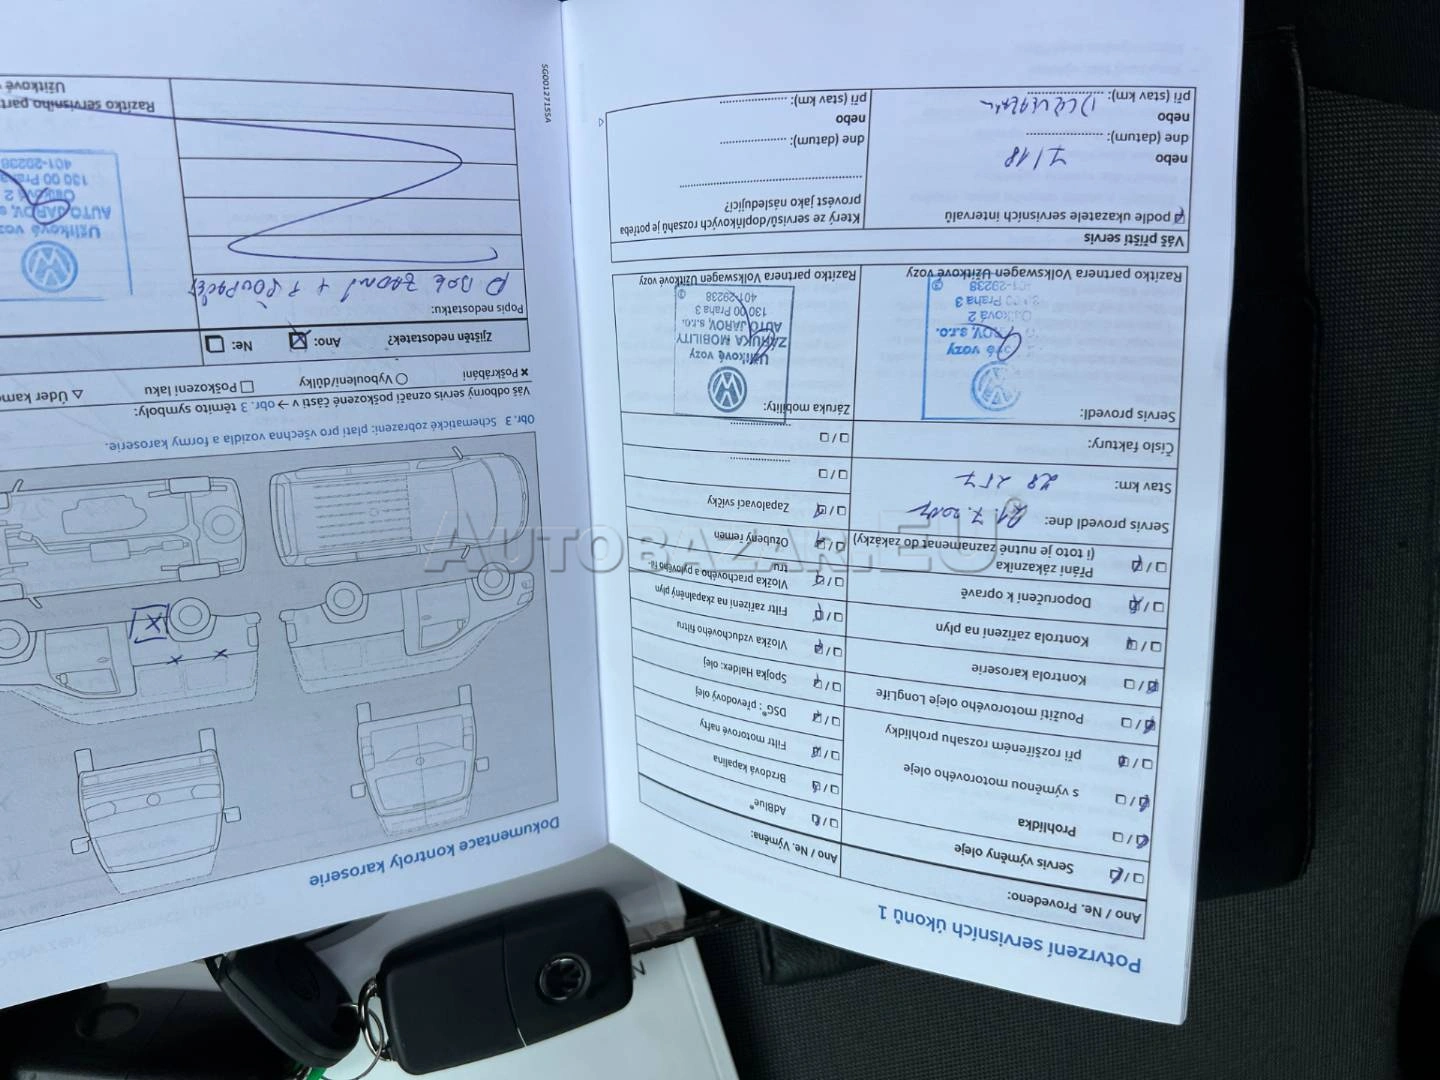 Potvrzení servisních úkonů 1
Ano / Ne. Provedeno:
Servis výměny oleje
Prohlídka
s výměnou motorového oleje
při rozšířeném rozsahu prohlídky
Použití motorového oleje LongLife
Kontrola karoserie
Kontrola zařízení na plyn
Doporučení k opravě
Přání zákazníka
(i toto je nutné zaznamenat do zakázky)
Servis provedl dne:
Stav km:
28 257
Číslo faktury:
Servis provedl:
401-29238
Razítko partnera Volkswagen Užitkové vozy
Ano / Ne. Výměna:
AdBlue®
Brzdová kapalina
Filtr motorové nafty
DSG®: převodový olej
Spojka Haldex: olej
Vložka vzduchového filtru
Filtr zařízení na zkapalněný plyn
Vložka prachového a pylového fil-
tru
Ozubený řemen
Zapalovací svíčky
Záruka mobility:
Užitkové vozy
ZÁRUKA MOBILITY
AUTO JAROV, s.r.o.
130 00 Praha 3
401-29238
Razítko partnera Volkswagen Užitkové vozy
Váš příští servis
podle ukazatele servisních intervalů
nebo
7/18
dne (datum):
nebo
při (stav km):
Který ze servisů/doplňkových rozsahů je potřeba
provést jako následující?
dne (datum):
nebo
při (stav km):
Dokumentace kontroly karoserie
Obr. 3 Schematické zobrazení: platí pro všechna vozidla a formy karoserie.
Váš odborný servis označí poškozené části v → obr. 3 těmito symboly:
× Poškrábání
Vyboulení/důlky
Poškození laku
Úder kame
Zjištěn nedostatek?
Ano:
Ne:
Popis nedostatku:
Užitková voz
AUTO JAROV, s
130 00 Praha
401-29238
Razítko servisního part
Užitkové
SG0012715SA
AUTOBAZAR.EU